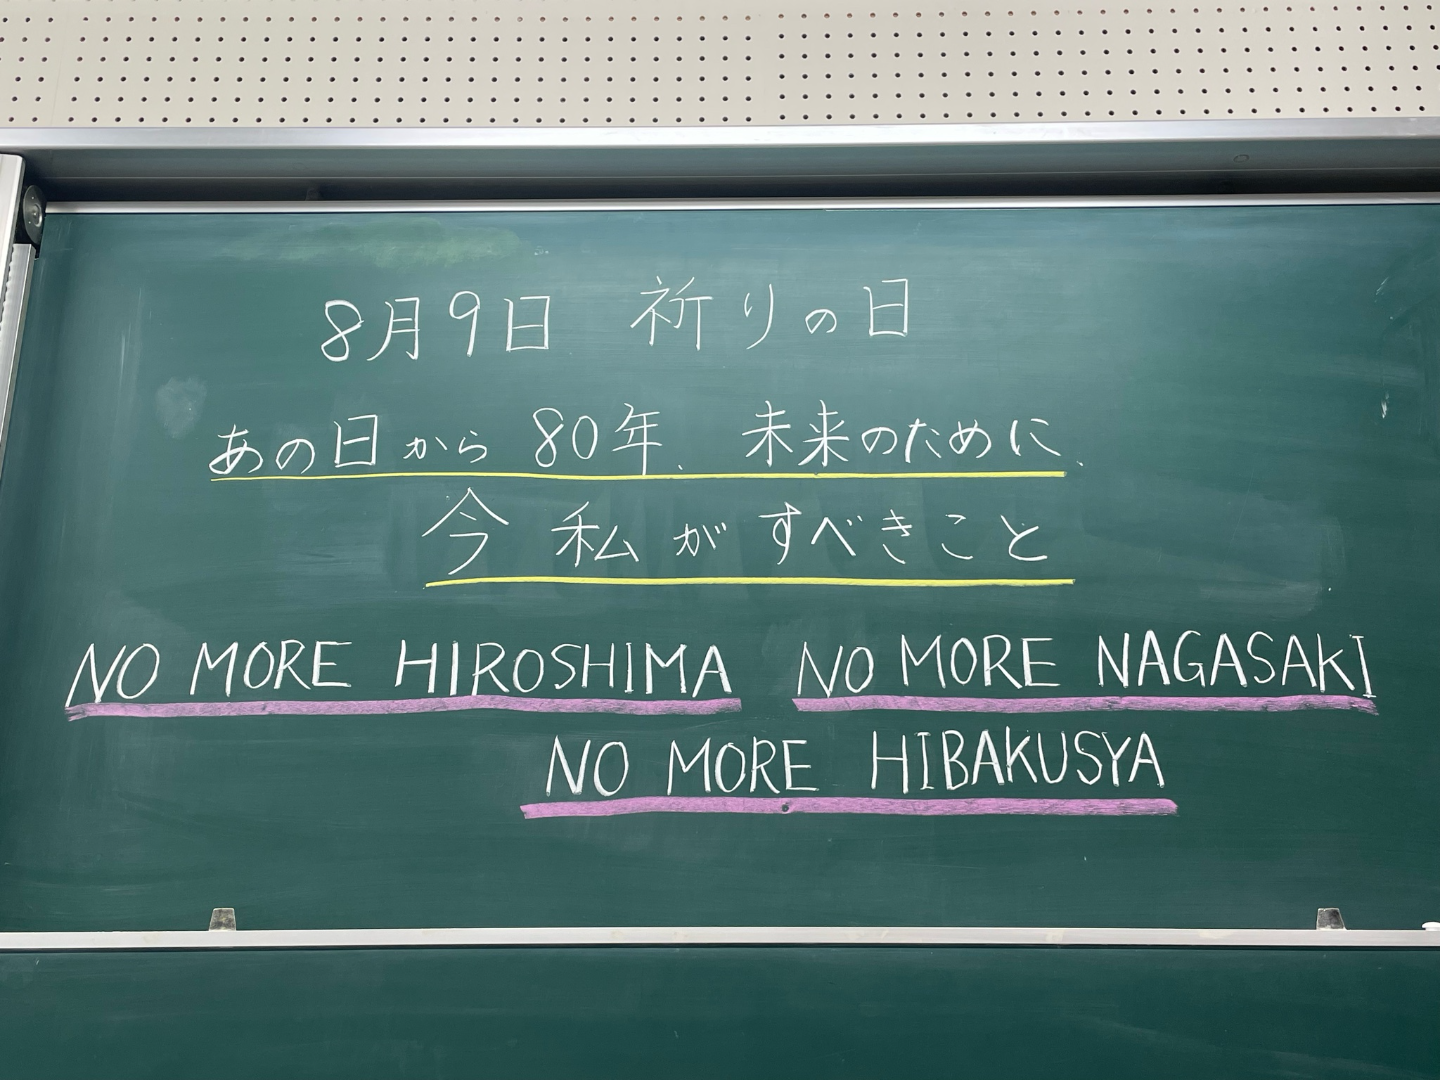 8月9日 祈りの日
あの日から80年、未来のために、
今私がすべきこと
NO MORE HIROSHIMA NO MORE NAGASAKI
NO MORE HIBAKUSYA